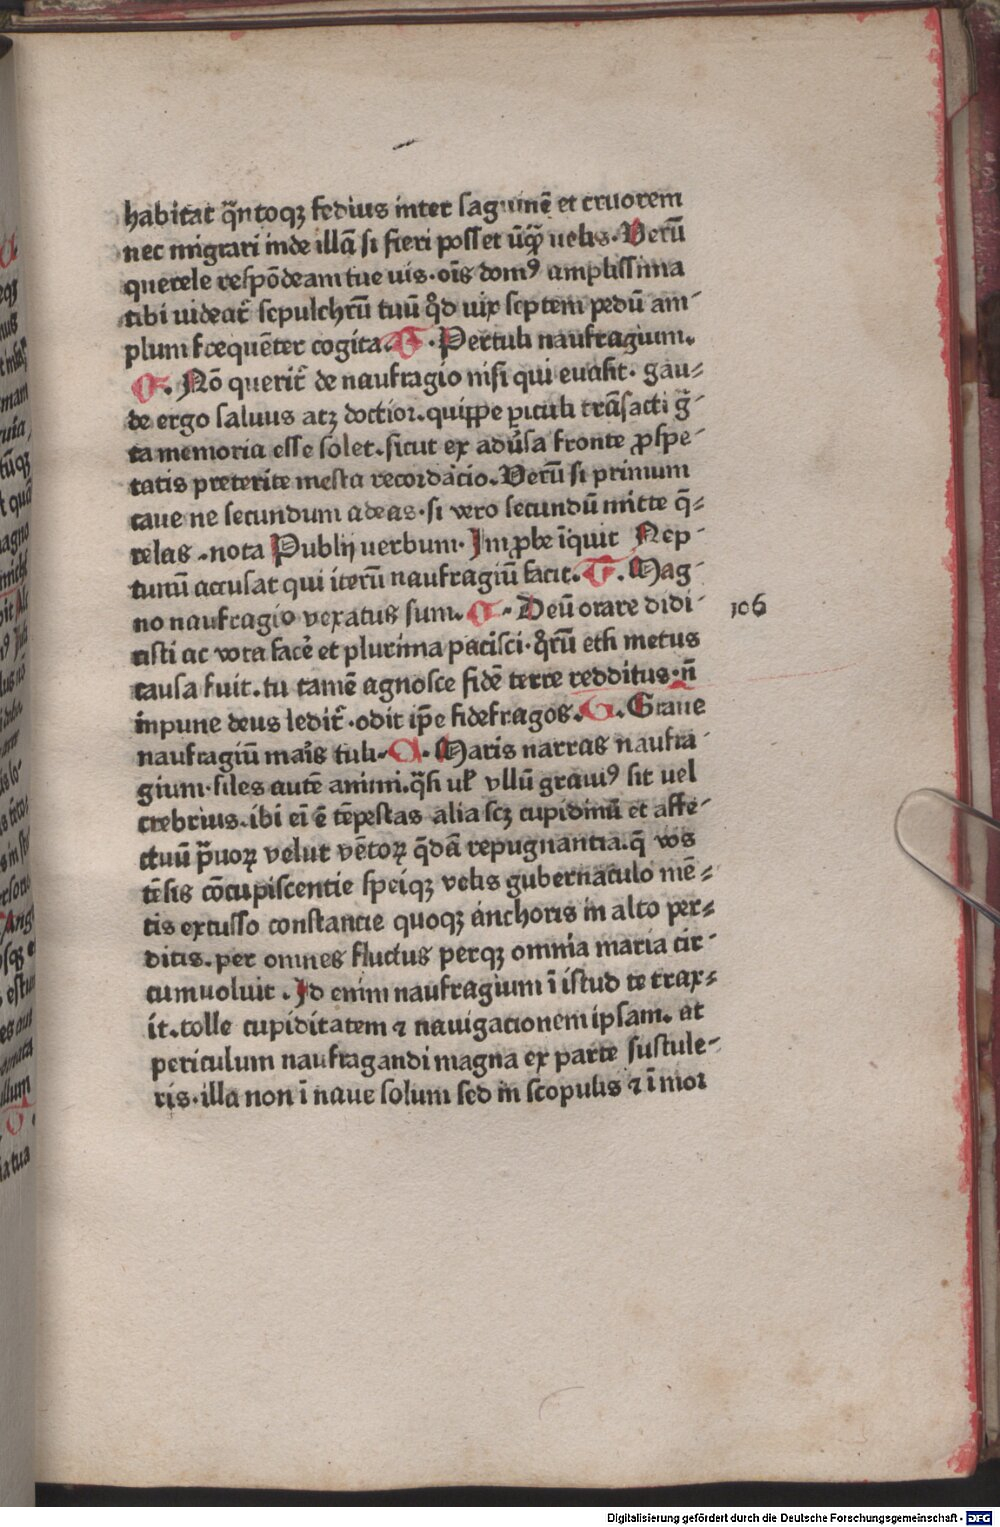 habitat q̃ntoqꝫ fedius inter saguinē et cruorem
nec migrari inde illā si fieri posset ūq̃ uelis. Verū
querele respōdeam tue uis. oīs domꝰ amplissima
tibi uideat᷑ sepulchrū tuū qd̛ uix septem pedū am-
plum frequēter cogita. G. Pertuli naufragium.
R. Nō querit᷑ de naufragio nisi qui euasit. gau-
de ergo saluus atꝫ doctior. quippe ꝑiculi trāsacti g̃-
ta memoria esse solet. sicut ex aduͬsa fronte ꝓspe-
tatis preterite mesta recordacio. Verū si primum
caue ne secundum adeas. si vero secundū mitte q̃-
relas. nota Publij uerbum. Imꝓbe īquit Nep-
tunū accusat qui iterū naufragiū facit. G. Mag-
no naufragio vexatus sum. R. Deū orare didi-
cisti ac vota facē et plurima pacisci. qͦrū etsi metus
causa fuit. tu tamē agnosce fidē terre redditus. n̄
inpune deus ledit᷑. odit ip̄e fidefragos. G. Graue
naufragiū maris tuli. R. Maris narras naufra-
gium. siles autē animi. q̃si ul̛ vllū grauiꝰ sit uel
crebrius. ibi eī ē tēpestas alia scꝫ cupidinū et affe-
ctuū p̃uoꝝ velut vētoꝝ q̄dā repugnantia. q̄ vos
tēsis cōcupiscentie speiqꝫ velis gubernaculo mē-
tis excusso constancie quoqꝫ anchoris in alto per-
ditis. per omnes fluctus perqꝫ omnia maria cir-
cumuoluit. Id enim naufragium ī istud te trax-
it. tolle cupiditatem ⁊ nauigacionem ipsam. at
periculum naufragandi magna ex parte sustule-
ris. illa non ī naue solum sed in scopulis ⁊ ī mor
106
Digitalisierung gefördert durch die Deutsche Forschungsgemeinschaft - DFG